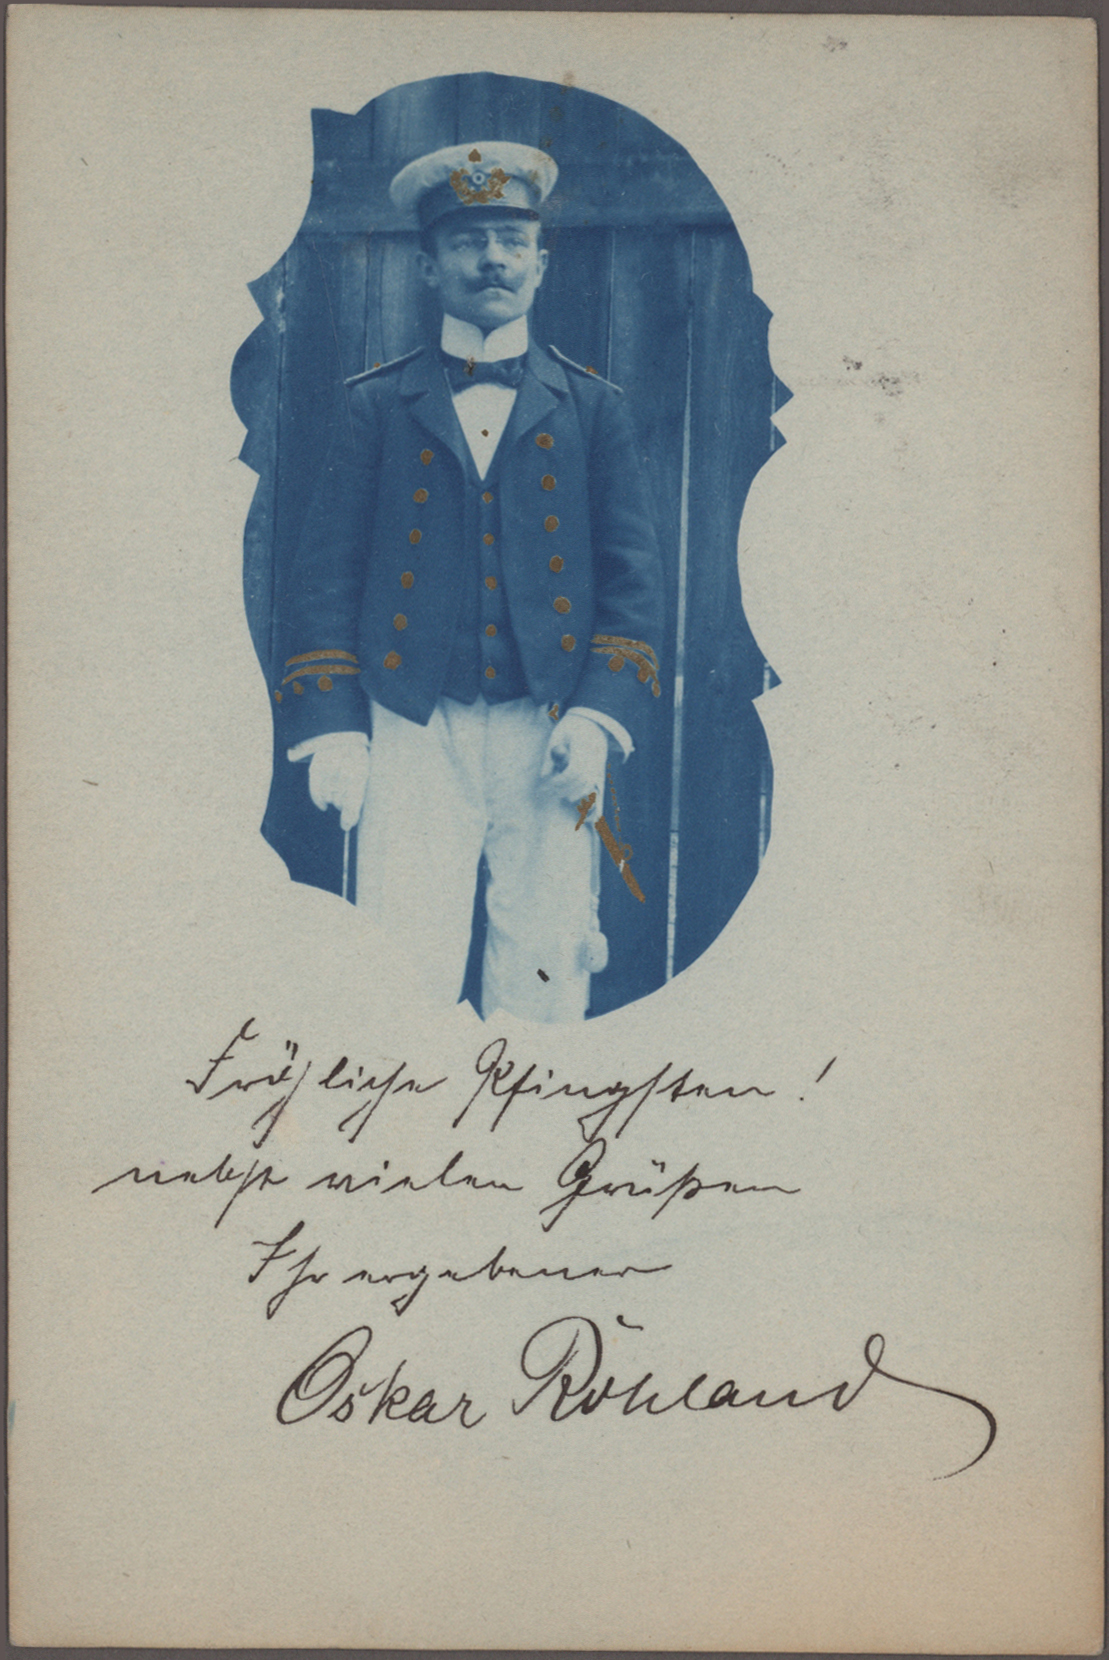 Fröhliche Pfingsten!
nebst vielen Grüßen
Ihr ergebener
Oskar Röhland